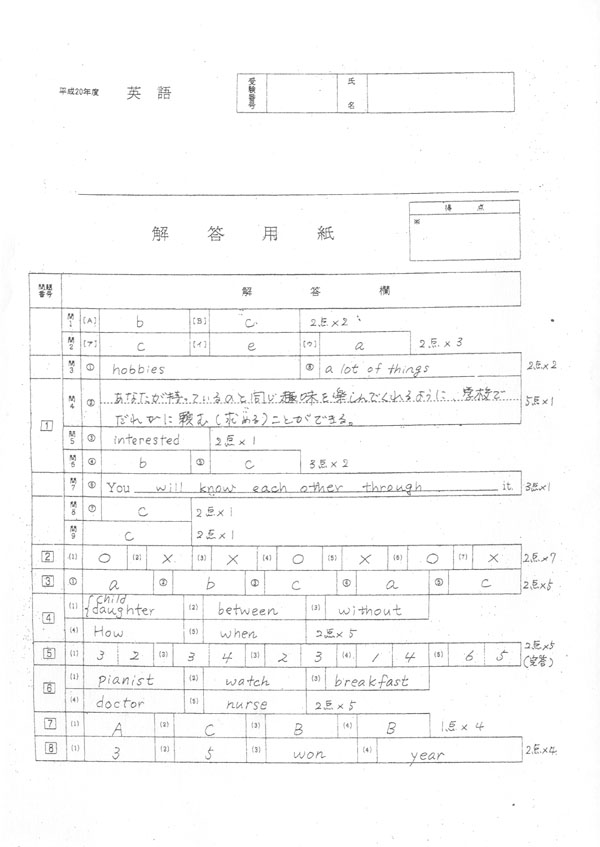 平成20年度 英語 受験番号 氏名
得点
※
解答用紙
問題番号 解答欄
1 問1 [A] b [B] c 2点×2
問2 [ア] c [イ] e [ウ] a 2点×3
問3 ① hobbies ⑧ a lot of things 2点×2
問4 ② あなたが持っているのと同じ趣味を楽しんでくれるように 学校で 5点×1
だれかに頼む(求める)ことができる。
問5 ③ interested 2点×1
問6 ④ b ⑤ c 3点×2
問7 ⑥ You will know each other through it. 3点×1
問8 ⑦ c 2点×1
問9 c 2点×1
2 (1) ○ (2) × (3) × (4) ○ (5) × (6) ○ (7) × 2点×7
3 ① a ② b ③ c ④ a ⑤ c 2点×5
4 (1) { child daughter (2) between (3) without
(4) How (5) when 2点×5
5 (1) 3 2 (2) 3 4 (3) 2 3 (4) 1 4 (5) 6 5 2点×5 (完答)
6 (1) pianist (2) watch (3) breakfast
(4) doctor (5) nurse 2点×5
7 (1) A (2) C (3) B (4) B 1点×4
8 (1) 3 (2) 5 (3) won (4) year 2点×4